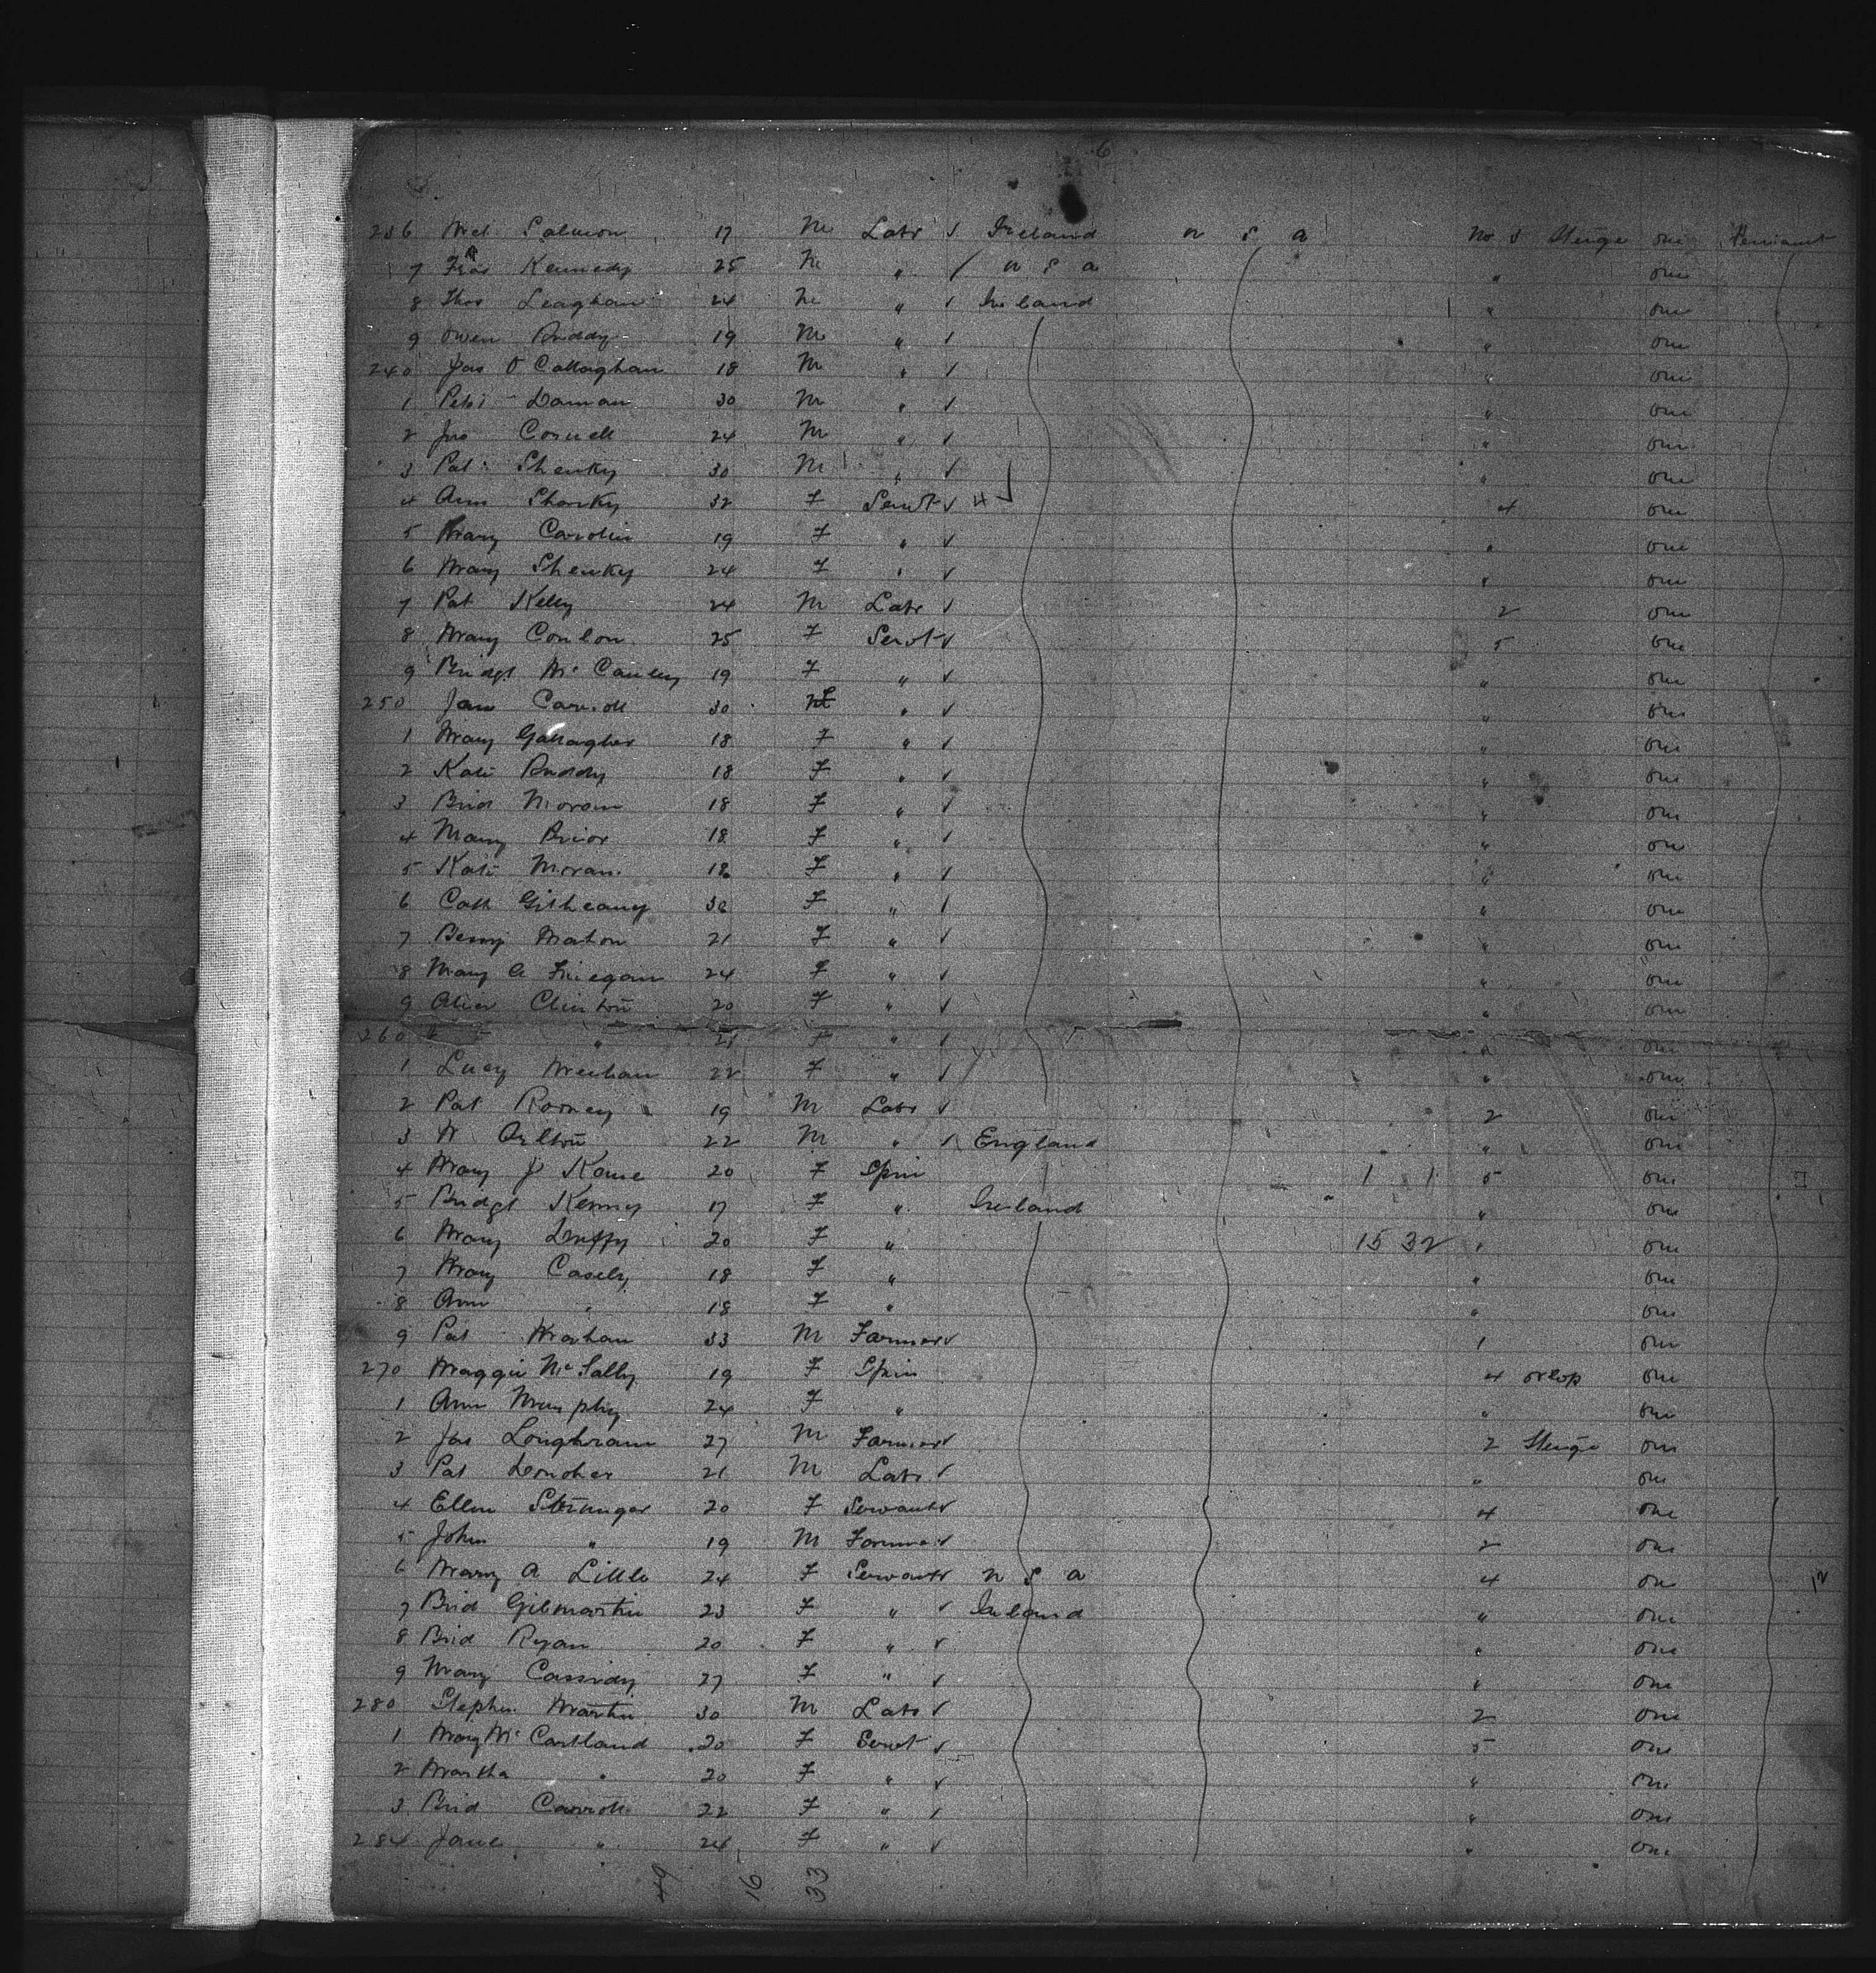 6
236 Mcl Salmon 17 M Labr ✓ Ireland U S A No 3 Steige one Permanent
7 Fras Kennedy 25 M " ✓ U S A " one
8 Thos Leaghan 24 M " ✓ Ireland " one
9 Owen Ruddy 19 M " ✓ " one
240 Jas O Callaghan 18 M " ✓ " one
1 Petr 30 M " ✓ " one
2 Jno 24 M " ✓ " one
3 Pat Sharky 30 M " ✓ " one
4 Ann Sharky 32 F Servt ✓ 4 one
5 Mary Carolin 19 F " ✓ " one
6 Mary Sharky 24 F " ✓ " one
7 Pat Kelly 24 M Labr ✓ 2 one
8 Mary Conlon 25 F Servt ✓ 5 one
9 Bridgt Mc Cauley 19 F " ✓ " one
250 Jane Carroll 30 F " ✓ " one
1 Mary Gallagher 18 F " ✓ " one
2 Kate Ruddy 18 F " ✓ " one
3 Brid Moran 18 F " ✓ " one
4 Mary Prior 18 F " ✓ " one
5 Kate Moran 18 F " ✓ " one
6 Cath Gilheany F " ✓ " one
7 Mahon 21 F " ✓ " one
8 Mary A Finegan 24 F " ✓ " one
9 Alice Clinton 20 F " ✓ " one
260 " 21 F " ✓ " one
1 Lucy Meehan 22 F " ✓ " one
2 Pat Rooney 19 M Labr ✓ 2 one
3 22 M " ✓ England " one
4 Mary J Kane 20 F Spin 1 1 5 one
5 Bridgt Kenny 17 F " Ireland " one
6 Mary Duffy 20 F " 15 32 " one
7 Mary Casely 18 F " " one
8 Ann " 18 F " " one
9 Pat 33 M Farmer ✓ 1 one
270 Maggie Mc Sally 19 F Spin 4 orlop one
1 Ann Murphy 24 F " " one
2 Jas Loughran 27 M Farmer ✓ 2 Steige one
3 Pat Donoher 21 M Labr ✓ " one
4 Ellen 20 F Servant ✓ 4 one
5 John " 19 M Farmer ✓ 2 one
6 Mary A Little 24 F Servant ✓ U S A 4 one
7 Brid Gilmartin 23 F " ✓ Ireland " one
8 Brid Ryan 20 F " ✓ " one
9 Mary Cassidy 27 F " ✓ " one
280 Stephen Martin 30 M Labr ✓ 2 one
1 Mary Mc Cartland 20 F Servt ✓ 5 one
2 Martha " 20 F " ✓ " one
3 Brid Carroll 22 F " ✓ " one
284 Jane " 24 F " ✓ " one
49 16 33